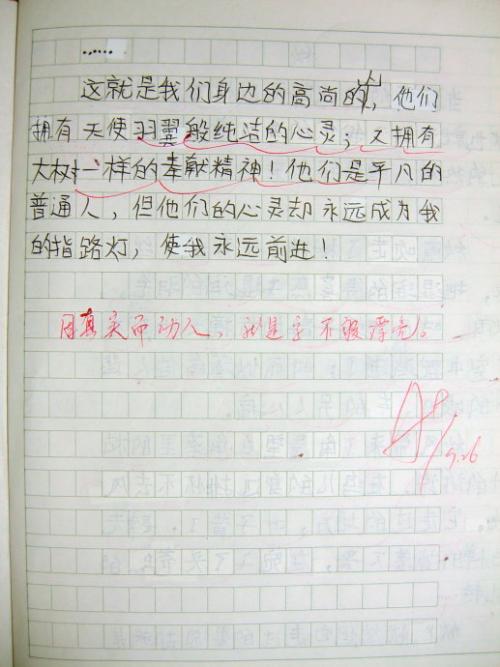 ……
这就是我们身边的高尚的人,他们
拥有天使羽翼般纯洁的心灵;又拥有
大树一样的奉献精神!他们是平凡的
普通人,但他们的心灵却永远成为我
的指路灯,使我永远前进!
因真实而动人,就是字不够漂亮!
A+ 9.26